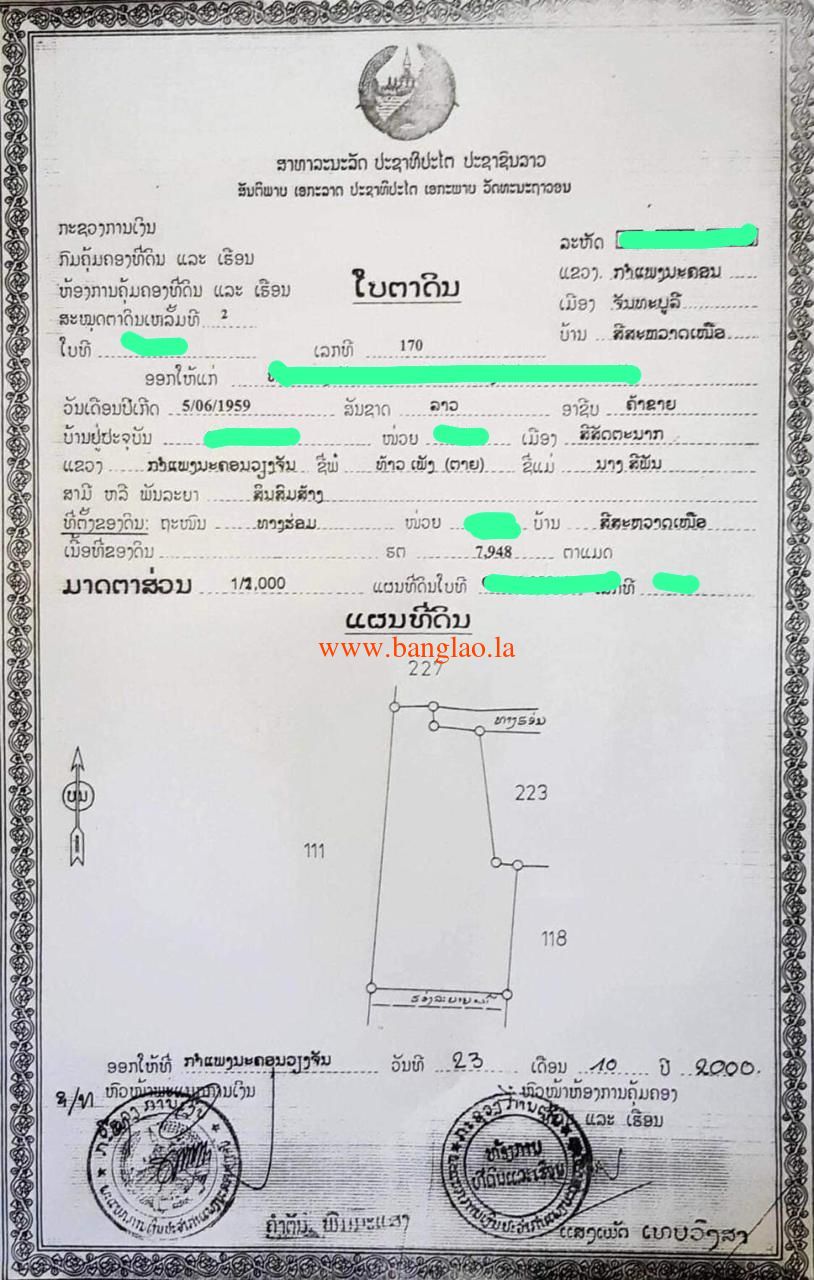 ສາທາລະນະລັດ ປະຊາທິປະໄຕ ປະຊາຊົນລາວ
ສັນຕິພາບ ເອກະລາດ ປະຊາທິປະໄຕ ເອກະພາບ ວັດທະນະຖາວອນ
ກະຊວງການເງິນ
ລະຫັດ
ກົມຄຸ້ມຄອງທີ່ດິນ ແລະ ເຮືອນ
ແຂວງ ກຳແພງນະຄອນ
ຫ້ອງການຄຸ້ມຄອງທີ່ດິນ ແລະ ເຮືອນ
ໃບຕາດິນ
ເມືອງ ຈັນທະບູລີ
ສະໝຸດຕາດິນເຫລັ້ມທີ 2
ບ້ານ ສີສະຫວາດເໜືອ
ໃບທີ ເລກທີ 170
ອອກໃຫ້ແກ່
ວັນເດືອນປີເກີດ 5/06/1959 ສັນຊາດ ລາວ ອາຊີບ ຄ້າຂາຍ
ບ້ານຢູ່ປະຈຸບັນ ໜ່ວຍ ເມືອງ ສີສັດຕະນາກ
ແຂວງ ກຳແພງນະຄອນວຽງຈັນ ຊື່ພໍ່ ທ້າວ ເພັງ (ຕາຍ) ຊື່ແມ່ ນາງ ສີພັນ
ສາມີ ຫລື ພັນລະຍາ ສິນສົມສ້າງ
ທີ່ຕັ້ງຂອງດິນ: ຖະໜົນ ທາງຮ່ອມ ໜ່ວຍ ບ້ານ ສີສະຫວາດເໜືອ
ເນື້ອທີ່ຂອງດິນ ຮຕ 7,948 ຕາແມດ
ມາດຕາສ່ວນ 1/1,000 ແຜນທີ່ດິນໃບທີ ເລກທີ
ແຜນທີ່ດິນ
www.banglao.la
227
ທາງຮ່ອມ
223
111
118
ຮ່ອງລະບາຍນ້ຳ
ອອກໃຫ້ທີ່ ກຳແພງນະຄອນວຽງຈັນ ວັນທີ 23 ເດືອນ 10 ປີ 2000.
ຫົວໜ້າພະແນກການເງິນ
ຫົວໜ້າຫ້ອງການຄຸ້ມຄອງ
ແລະ ເຮືອນ
ຫ້ອງການ
ທີ່ດິນແລະເຮືອນ
ຄຳຕັນ ພິມມະແສງ
ແສງເພັດ ເທບວົງສາ